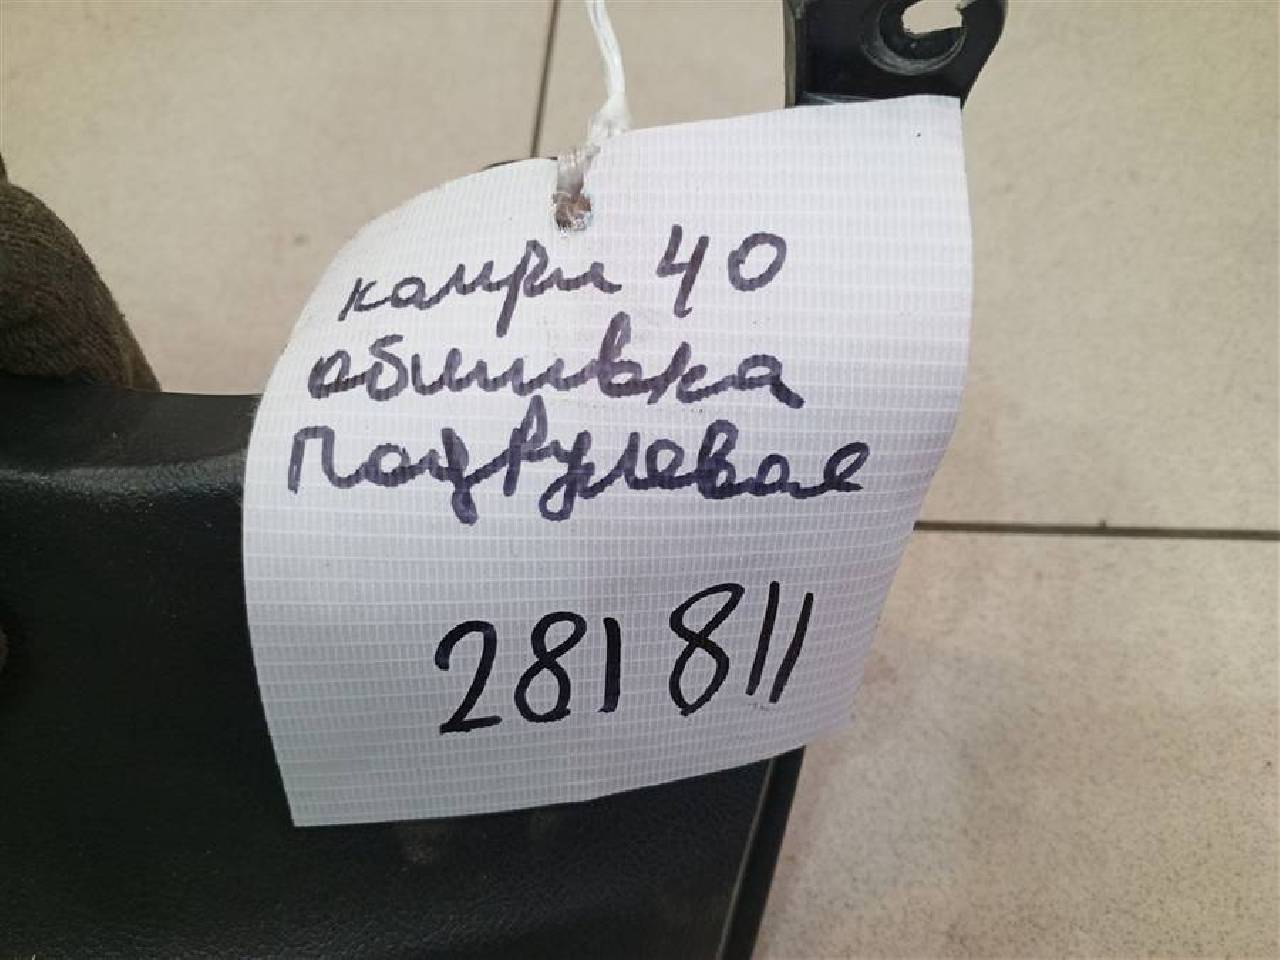 камри 40
обшивка
Подрулевая
281811